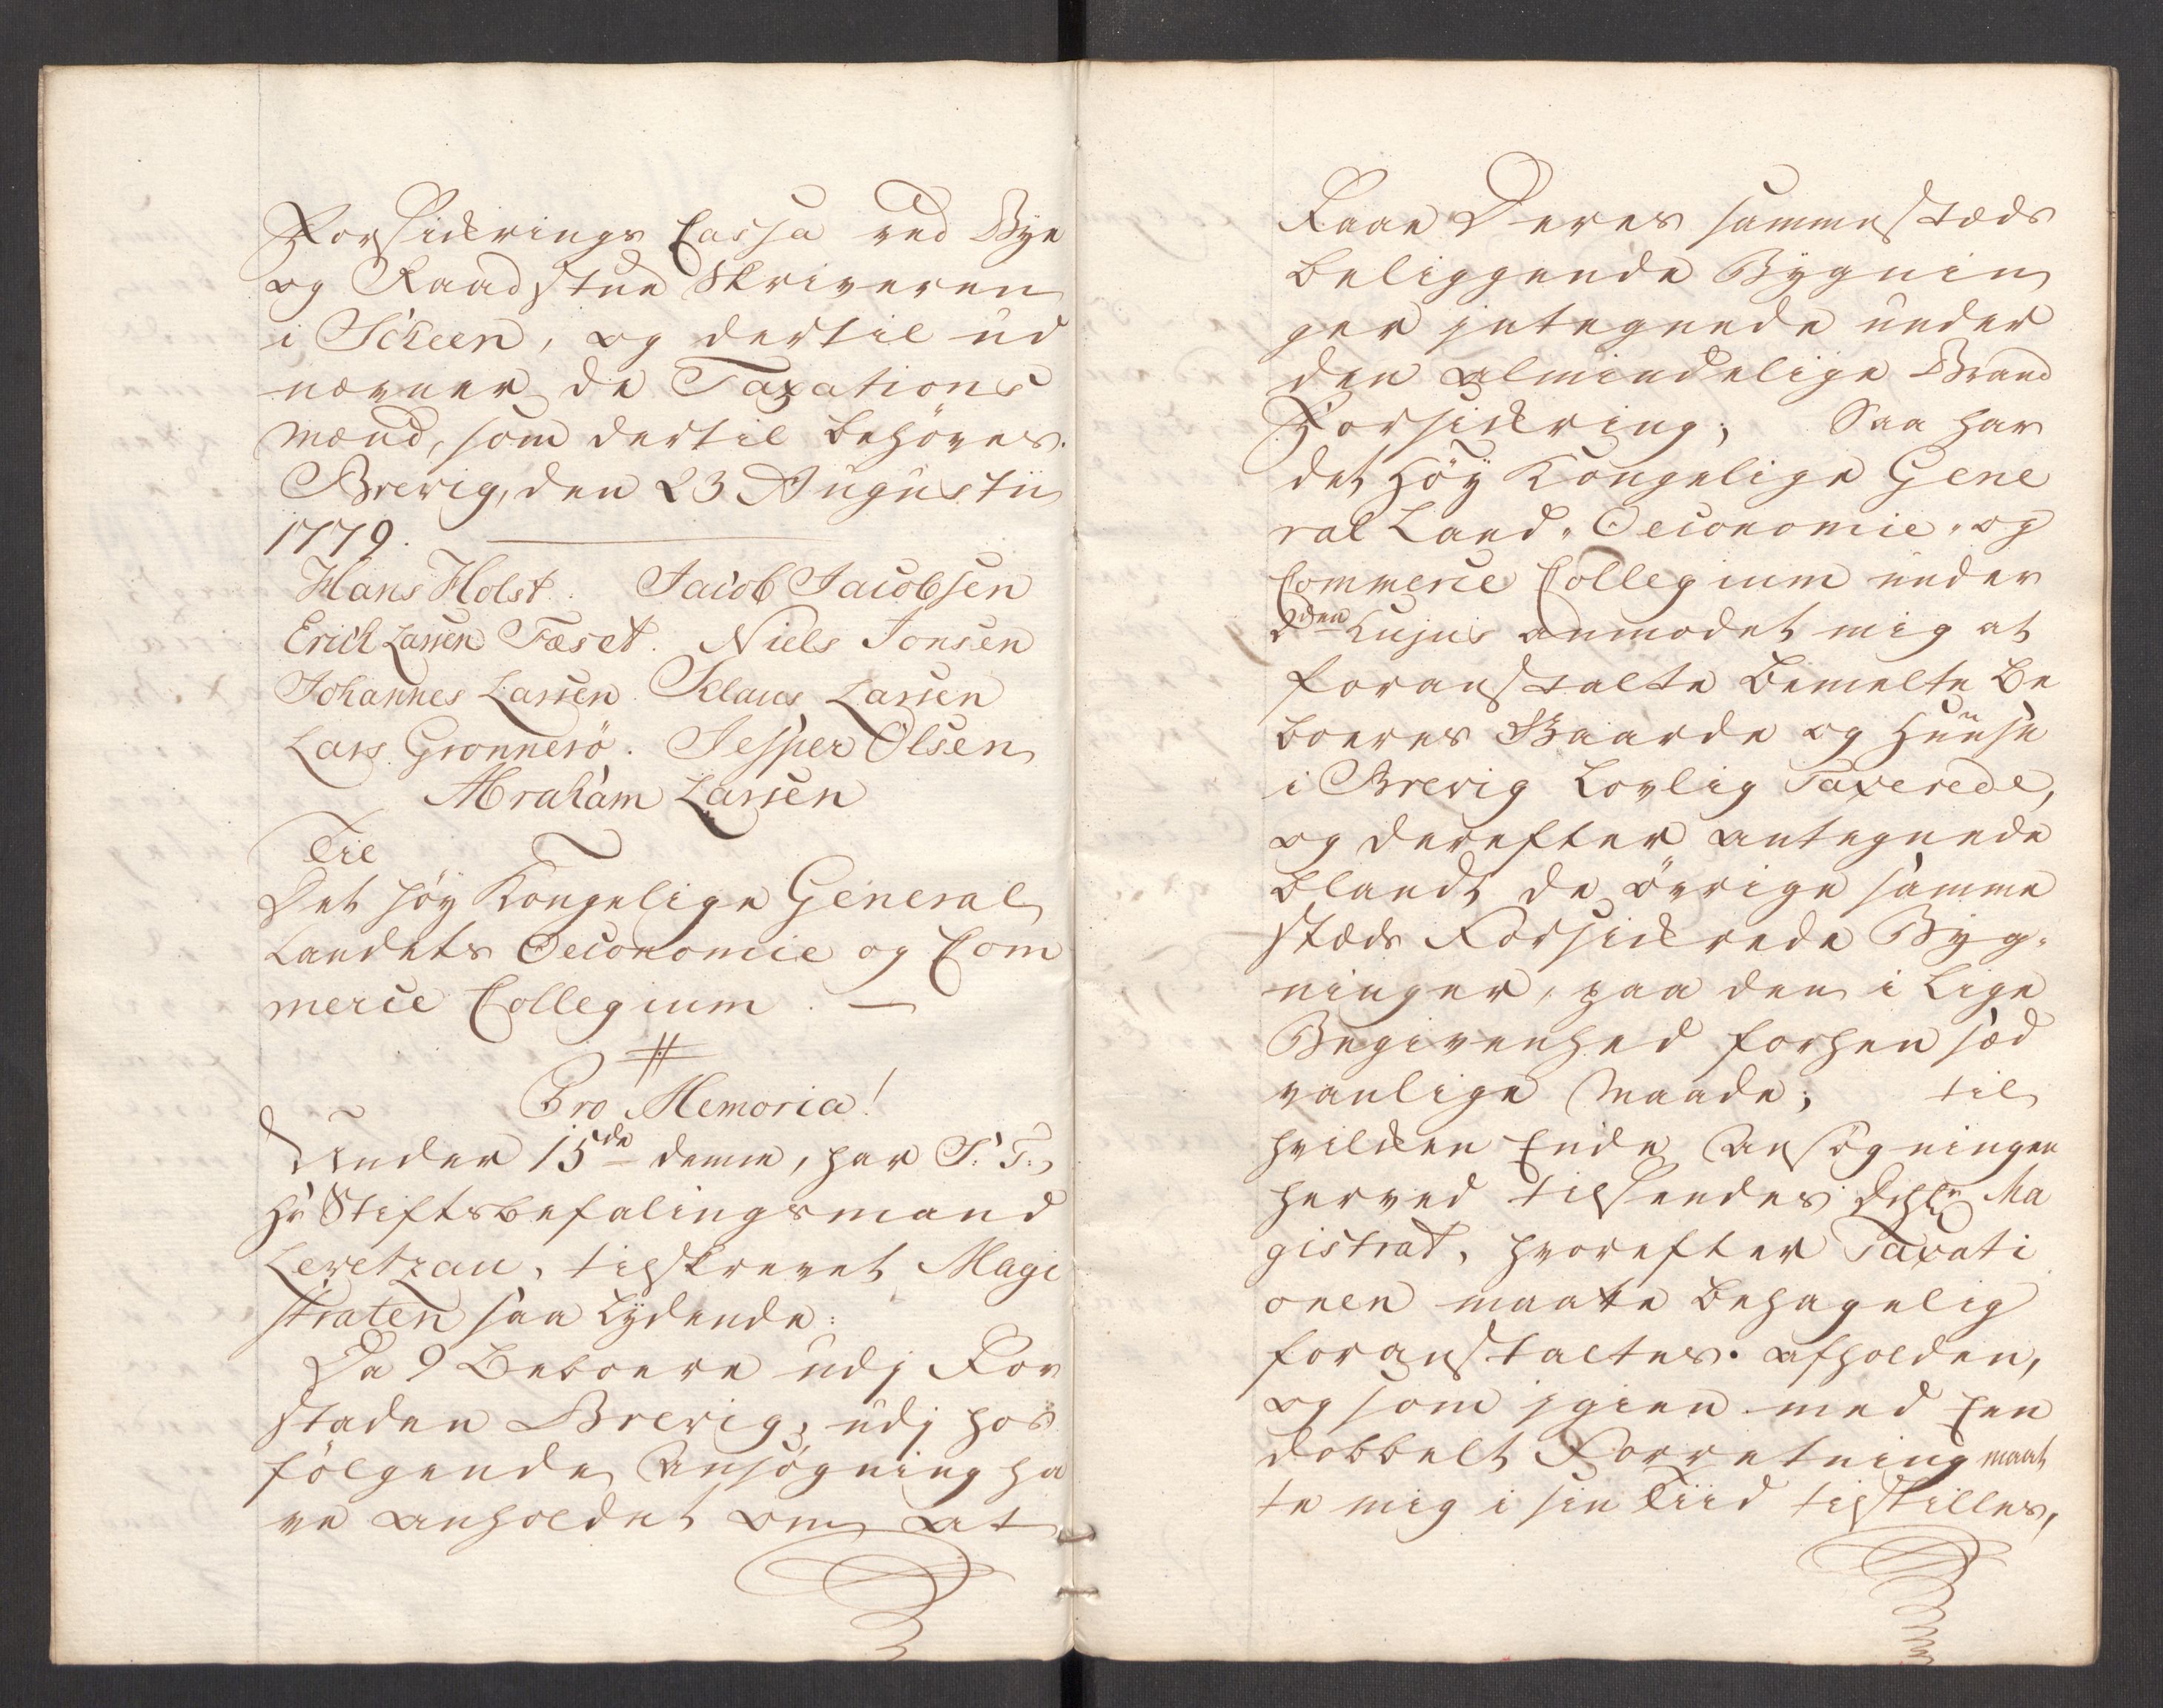 Forsickrings Cassa ved Bye
og Raadstue Skriveren
i Scheen, og dertil ud
nævner de Taxations
Mænd, som dertil behöves.
Brevig, den 23 Augustii
1779.
Hans Holst. Jacob Jacobsen
Erich Larsen Tæset. Niels Jonsen
Johannes Larsen. Klaus Larsen
Lars Grønnerö. Jesper Olsen
Abraham Larsen
Til
Det höy Kongelige General
Landets Oeconomie og Com
merce Collegium. —
Pro Memoria!
Under 15de denne, har S: T:
Hr Stiftsbefalingsmand
Levetzau, tilskrevet Magi
straten saa Lydende:
Da 9 Beboere udj For
staden Brevig, udj hos
fölgende Ansögning ha
ve anholdet om at
Faae Deres sammestæds
beliggende Bygnin
ger jntegnede under
den almindelige Brand
Forsickring; Saa har
det Höy Kongelige Gene
ral Land-Oeconomie-og
Commerce Collegium under
2den hujus anmodet mig at
foranstalte bemelte Be
boeres Gaarde og Huuse
i Brevig Lovlig Taxerede,
og derefter antegnede
blandt de övrige samme
stæds Forsickrede Byg-
ninger, paa den i Lige
Begivenhed forhen sæd
vanlige Maade; til
hvilken Ende Ansögningen
herved tilsendes Ma
gistrat, hvorefter Taxati
onen maatte behagelig
foranstaltes afholden,
og som jgien med Een
dobbelt Forretning maat
te mig i sin Tiid tilstilles,